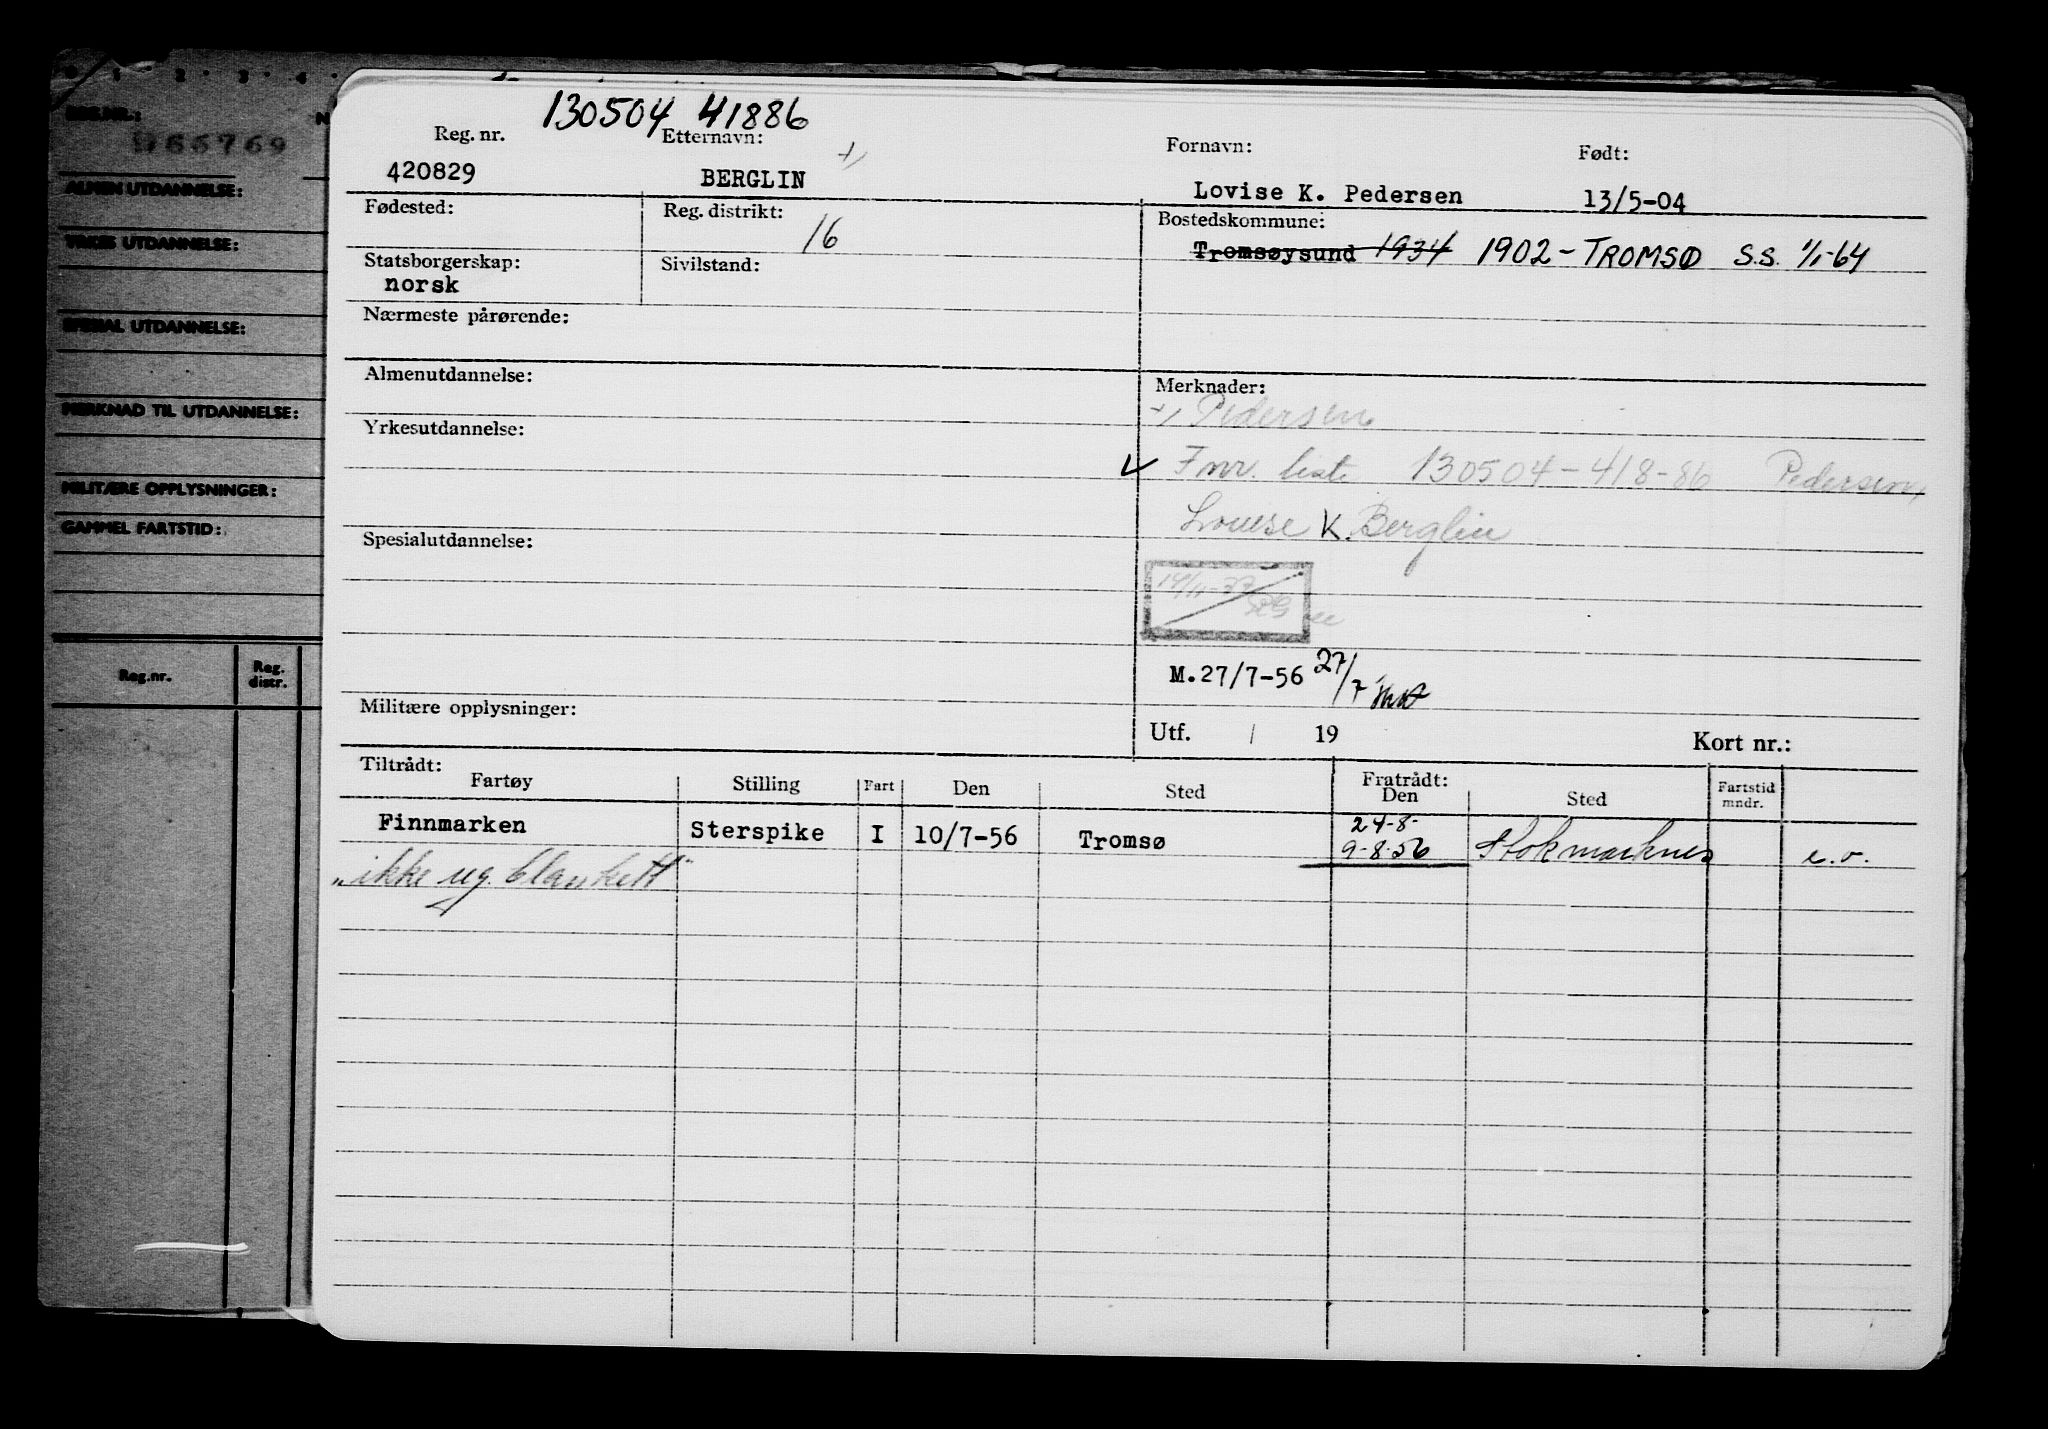 0 1 2 3 4
REG.NR.:
D66769
ALMEN UTDANNELSE:
YRKES UTDANNELSE:
SPESIAL UTDANNELSE:
MERKNAD TIL UTDANNELSE:
MILITÆRE OPPLYSNINGER:
GAMMEL FARTSTID:
Reg.nr. Reg. distr.
130504 41886
Reg. nr. Etternavn: Fornavn: Født:
420829 BERGLIN +, Lovise K. Pedersen 13/5-04
Fødested: Reg. distrikt: 16 Bostedskommune:
Tromsøysund 1934 1902 - TROMSØ S.S. 1/1-64
Statsborgerskap: Sivilstand:
norsk
Nærmeste pårørende:
Almenutdannelse: Merknader:
+, Pedersen
Yrkesutdannelse:
✓ Fnr. liste 130504-418-86 Pedersen,
Louise K. Berglin
Spesialutdannelse:
14/11-77
M.27/7-56 27/7
Militære opplysninger:
Utf. / 19 Kort nr.:
Tiltrådt: Fratrådt:
Fartøy Stilling Fart Den Sted Den Sted Fartstid mndr.
24-8-
Finnmarken Sterspike I 10/7-56 Tromsø 9-8-56 Stokmarknes e.o.
"ikke ug. blankett"